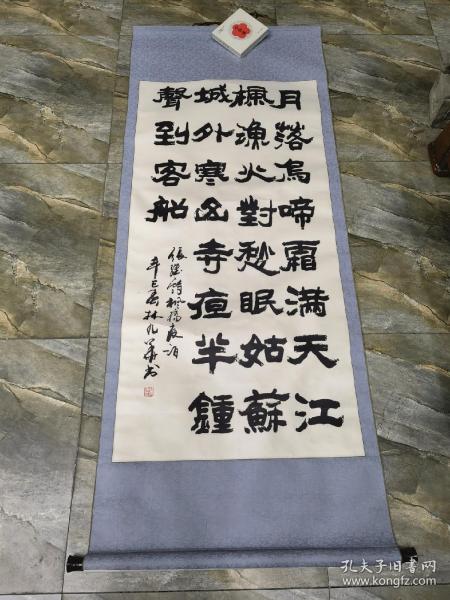 月落烏啼霜滿天江
楓漁火對愁眠姑蘇
城外寒山寺夜半鍾
聲到客船
張繼詩楓橋夜泊
辛巳春林
孔夫子旧书网
www.kongfz.com